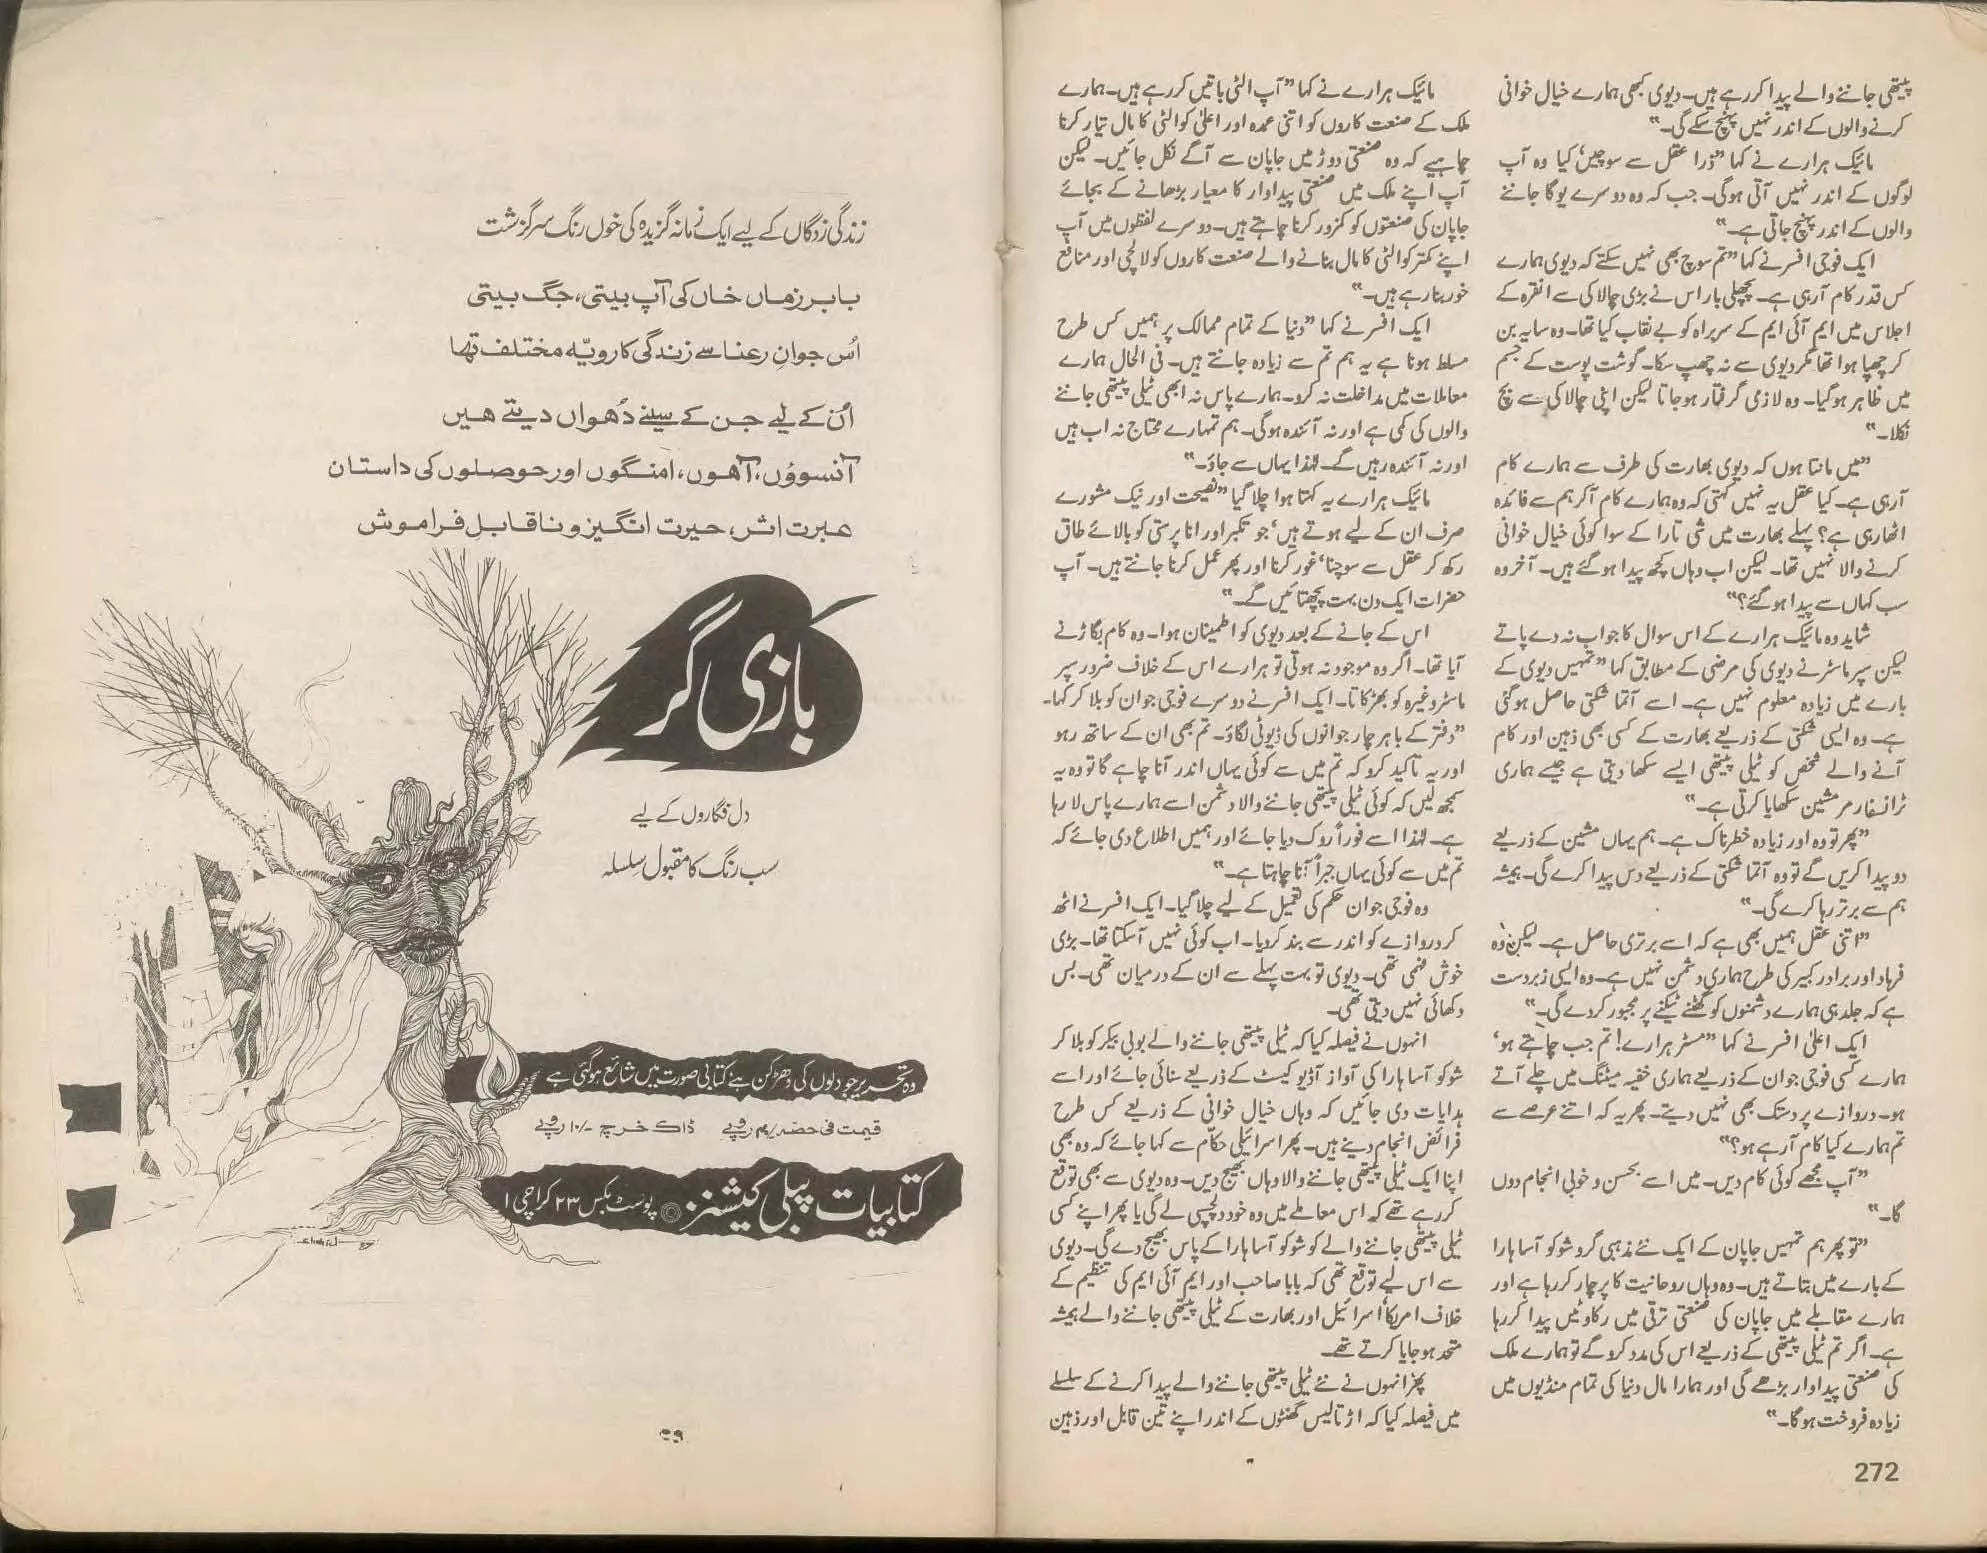 پیتھی جاننے والے پیدا کر رہے ہیں۔ دیوی کبھی ہمارے خیال خوانی
کرنے والوں کے اندر نہیں پہنچ سکے گی۔"
مائیک ہرارے نے کہا "ذرا عقل سے سوچیں‘ کیا وہ آپ
لوگوں کے اندر نہیں آتی ہوگی۔ جب کہ وہ دوسرے یوگا جاننے
والوں کے اندر پہنچ جاتی ہے۔"
ایک فوجی افسر نے کہا "تم سوچ بھی نہیں سکتے کہ دیوی ہمارے
کس قدر کام آ رہی ہے۔ پچھلی بار اس نے بڑی چالاکی سے انقرہ کے
اجلاس میں ایم آئی ایم کے سربراہ کو بے نقاب کیا تھا۔ وہ سایہ بن
کر چھپا ہوا تھا مگر دیوی سے نہ چھپ سکا۔ گوشت پوست کے جسم
میں ظاہر ہو گیا۔ وہ لازمی گرفتار ہو جاتا لیکن اپنی چالاکی سے بچ
نکلا۔"
"میں مانتا ہوں کہ دیوی بھارت کی طرف سے ہمارے کام
آ رہی ہے۔ کیا عقل یہ نہیں کہتی کہ وہ ہمارے کام آ کر ہم سے فائدہ
اٹھا رہی ہے؟ پہلے بھارت میں شی تارا کے سوا کوئی خیال خوانی
کرنے والا نہیں تھا۔ لیکن اب وہاں کچھ پیدا ہو گئے ہیں۔ آخر وہ
سب کہاں سے پیدا ہو گئے؟"
شاید وہ مائیک ہرارے کے اس سوال کا جواب نہ دے پاتے
لیکن سپر ماسٹر نے دیوی کی مرضی کے مطابق کہا "تمہیں دیوی کے
بارے میں زیادہ معلوم نہیں ہے۔ اسے آتما شکتی حاصل ہو گئی
ہے۔ وہ ایسی شکتی کے ذریعے بھارت کے کسی بھی ذہین اور کام
آنے والے شخص کو ٹیلی پیتھی ایسے سکھا دیتی ہے جیسے ہماری
ٹرانسفار مر مشین سکھایا کرتی ہے۔"
"پھر تو وہ اور زیادہ خطرناک ہے۔ ہم یہاں مشین کے ذریعے
دو پیدا کریں گے تو وہ آتما شکتی کے ذریعے دس پیدا کرے گی۔ ہمیشہ
ہم سے برتر رہا کرے گی۔"
"اتنی عقل ہمیں بھی ہے کہ اسے برتری حاصل ہے۔ لیکن وہ
فرہاد اور برادر کبیر کی طرح ہماری دشمن نہیں ہے۔ وہ ایسی زبردست
ہے کہ جلد ہی ہمارے دشمنوں کو گھٹنے ٹیکنے پر مجبور کر دے گی۔"
ایک اعلیٰ افسر نے کہا "مسٹر ہرارے! تم جب چاہتے ہو‘
ہمارے کسی فوجی جوان کے ذریعے ہماری خفیہ میٹنگ میں چلے آتے
ہو۔ دروازے پر دستک بھی نہیں دیتے۔ پھر یہ کہ اتنے عرصے سے
تم ہمارے کیا کام آ رہے ہو؟"
"آپ مجھے کوئی کام دیں۔ میں اسے بحسن و خوبی انجام دوں
گا۔"
"تو پھر ہم تمہیں جاپان کے ایک نئے مذہبی گرو شوکو آساہارا
کے بارے میں بتاتے ہیں۔ وہ وہاں روحانیت کا پرچار کر رہا ہے اور
ہمارے مقابلے میں جاپان کی صنعتی ترقی میں رکاوٹیں پیدا کر رہا
ہے۔ اگر تم ٹیلی پیتھی کے ذریعے اس کی مدد کرو گے تو ہمارے ملک
کی صنعتی پیداوار بڑھے گی اور ہمارا مال دنیا کی تمام منڈیوں میں
زیادہ فروخت ہوگا۔"
مائیک ہرارے نے کہا "آپ الٹی باتیں کر رہے ہیں۔ ہمارے
ملک کے صنعت کاروں کو اتنی عمدہ اور اعلیٰ کوالٹی کا مال تیار کرنا
چاہیے کہ وہ صنعتی دوڑ میں جاپان سے آگے نکل جائیں۔ لیکن
آپ اپنے ملک میں صنعتی پیداوار کا معیار بڑھانے کے بجائے
جاپان کی صنعتوں کو کمزور کرنا چاہتے ہیں۔ دوسرے لفظوں میں آپ
اپنے کمتر کوالٹی کا مال بنانے والے صنعت کاروں کو لالچی اور منافع
خور بنا رہے ہیں۔"
ایک افسر نے کہا "دنیا کے تمام ممالک پر ہمیں کس طرح
مسلط ہونا ہے یہ ہم تم سے زیادہ جانتے ہیں۔ فی الحال ہمارے
معاملات میں مداخلت نہ کرو۔ ہمارے پاس نہ ابھی ٹیلی پیتھی جاننے
والوں کی کمی ہے اور نہ آئندہ ہوگی۔ ہم تمہارے محتاج نہ اب ہیں
اور نہ آئندہ رہیں گے۔ لہٰذا یہاں سے جاؤ۔"
مائیک ہرارے یہ کہتا ہوا چلا گیا "نصیحت اور نیک مشورے
صرف ان کے لیے ہوتے ہیں‘ جو تکبر اور انا پرستی کو بالائے طاق
رکھ کر عقل سے سوچنا‘ غور کرنا اور پھر عمل کرنا جانتے ہیں۔ آپ
حضرات ایک دن بہت پچھتائیں گے۔"
اس کے جانے کے بعد دیوی کو اطمینان ہوا۔ وہ کام بگاڑنے
آیا تھا۔ اگر وہ موجود نہ ہوتی تو ہرارے اس کے خلاف ضرور سپر
ماسٹر وغیرہ کو بھڑکاتا۔ ایک افسر نے دوسرے فوجی جوان کو بلا کر کہا۔
"دفتر کے باہر چار جوانوں کی ڈیوٹی لگاؤ۔ تم بھی ان کے ساتھ رہو
اور یہ تاکید کرو کہ تم میں سے کوئی یہاں اندر آنا چاہے گا تو وہ یہ
سمجھ لیں کہ کوئی ٹیلی پیتھی جاننے والا دشمن اسے ہمارے پاس لا رہا
ہے۔ لہٰذا اسے فوراً روک دیا جائے اور ہمیں اطلاع دی جائے کہ
تم میں سے کوئی یہاں جبراً آنا چاہتا ہے۔"
وہ فوجی جوان حکم کی تعمیل کے لیے چلا گیا۔ ایک افسر نے اٹھ
کر دروازے کو اندر سے بند کر دیا۔ اب کوئی نہیں آ سکتا تھا۔ بڑی
خوش فہمی تھی۔ دیوی تو بہت پہلے سے ان کے درمیان تھی۔ بس
دکھائی نہیں دیتی تھی۔
انہوں نے فیصلہ کیا کہ ٹیلی پیتھی جاننے والے بوبی بیکر کو بلا کر
شوکو آساہارا کی آواز آڈیو کیسٹ کے ذریعے سنائی جائے اور اسے
ہدایات دی جائیں کہ وہاں خیال خوانی کے ذریعے کس طرح
فرائض انجام دینے ہیں۔ پھر اسرائیلی حکام سے کہا جائے کہ وہ بھی
اپنا ایک ٹیلی پیتھی جاننے والا وہاں بھیج دیں۔ وہ دیوی سے بھی توقع
کر رہے تھے کہ اس معاملے میں وہ خود دلچسپی لے گی یا پھر اپنے کسی
ٹیلی پیتھی جاننے والے کو شوکو آساہارا کے پاس بھیج دے گی۔ دیوی
سے اس لیے توقع تھی کہ بابا صاحب اور ایم آئی ایم کی تنظیم کے
خلاف امریکا‘ اسرائیل اور بھارت کے ٹیلی پیتھی جاننے والے ہمیشہ
متحد ہو جایا کرتے تھے۔
پھر انہوں نے نئے ٹیلی پیتھی جاننے والے پیدا کرنے کے سلسلے
میں فیصلہ کیا کہ اڑتالیس گھنٹوں کے اندر اپنے تین قابل اور ذہین
272
زندگی زدگاں کے لیے ایک زمانہ گزیدہ کی خوں رنگ سرگزشت
بابر زماں خاں کی آپ بیتی، جگ بیتی
اُس جوانِ رعنا سے زندگی کا رویّہ مختلف تھا
اُن کے لیے جن کے سینے دُھواں دیتے ھیں
آنسوؤں، آھوں، امنگوں اور حوصلوں کی داستان
عبرت اثر، حیرت انگیز و ناقابل فراموش
بازی گر
دل فگاروں کے لیے
سب رنگ کا مقبول سلسلہ
وہ تحریر جو دلوں کی دھڑکن بنے کتابی صورت میں شائع ہو گئی ہے
قیمت فی حصّہ ۴۰/ روپے ڈاک خرچ ۱۰/- روپے
کتابیات پبلی کیشنز پوسٹ بکس ۲۳ کراچی ۱